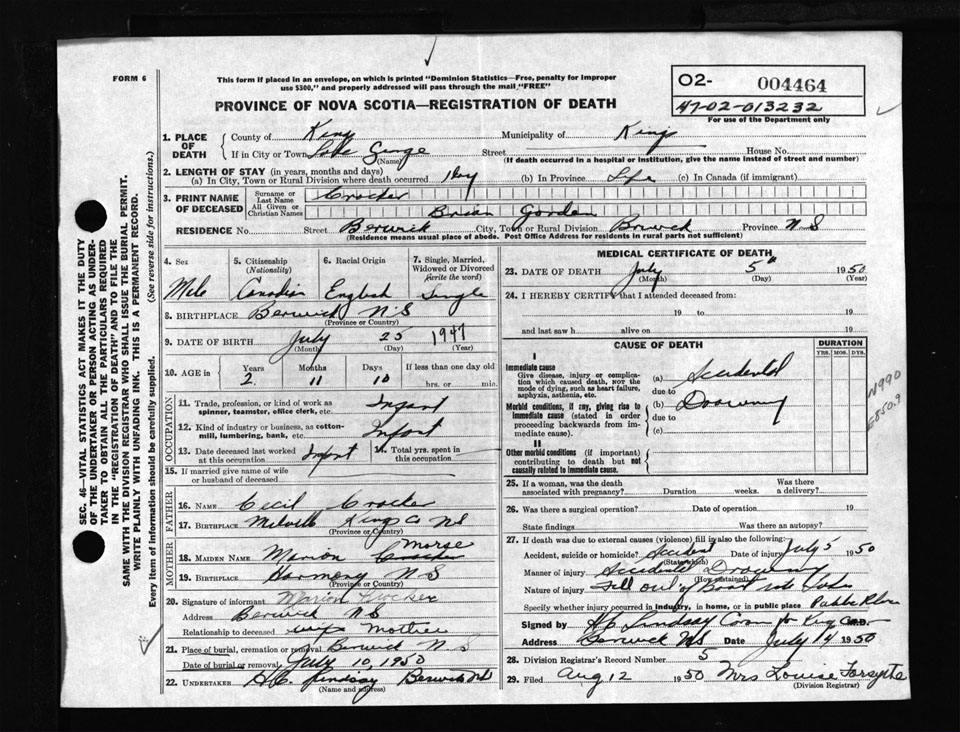 FORM 6
This form if placed in an envelope, on which is printed "Dominion Statistics—Free, penalty for improper
use $300," and properly addressed will pass through the mail "FREE"
PROVINCE OF NOVA SCOTIA—REGISTRATION OF DEATH
O2- 004464
47-02-013232
For use of the Department only
1. PLACE OF DEATH
County of Kings Municipality of Kings
If in City or Town Lake George Street House No.
(Name) (If death occurred in a hospital or institution, give the name instead of street and number)
2. LENGTH OF STAY (in years, months and days)
(a) In City, Town or Rural Division where death occurred 1 day (b) In Province Life (c) In Canada (if immigrant)
3. PRINT NAME OF DECEASED
Surname or Last Name Crocker
All Given or Christian Names Brian Gordon
RESIDENCE No. Street Berwick City, Town or Rural Division Berwick Province N S
(Residence means usual place of abode. Post Office Address for residents in rural parts not sufficient)
4. Sex 5. Citizenship (Nationality) 6. Racial Origin 7. Single, Married, Widowed or Divorced (write the word)
Male Canadian English Single
8. BIRTHPLACE Berwick N S
(Province or Country)
9. DATE OF BIRTH July 25 1947
(Month) (Day) (Year)
10. AGE in Years Months Days If less than one day old
2 11 10 hrs. or min.
OCCUPATION
11. Trade, profession, or kind of work as spinner, teamster, office clerk, etc. Infant
12. Kind of industry or business, as cotton-mill, lumbering, bank, etc. Infant
13. Date deceased last worked at this occupation Infant 14. Total yrs. spent in this occupation
15. If married give name of wife or husband of deceased
FATHER
16. NAME Cecil Crocker
17. BIRTHPLACE Kings Co NS
(Province or Country)
MOTHER
18. MAIDEN NAME Marion Morse
19. BIRTHPLACE Harmony N S
(Province or Country)
20. Signature of informant Marion Crocker
Address Berwick N S
Relationship to deceased Mother
21. Place of burial, cremation or removal Berwick N S
Date of burial or removal July 10, 1950
22. UNDERTAKER H C Lindsay Berwick NS
(Name and address)
MEDICAL CERTIFICATE OF DEATH
23. DATE OF DEATH July 5th 1950
(Month) (Day) (Year)
24. I HEREBY CERTIFY that I attended deceased from:
19 to 19
and last saw h alive on 19
CAUSE OF DEATH
DURATION
YRS. MOS. DYS.
I
Immediate cause
Give disease, injury or complication which caused death, NOT the mode of dying, such as heart failure, asphyxia, asthenia, etc.
(a) Accidental
due to
Morbid conditions, if any, giving rise to immediate cause (stated in order proceeding backwards from immediate cause).
(b) Drowning
due to
(c)
II
Other morbid conditions (if important) contributing to death but not causally related to immediate cause.
N990
E850.9
25. If a woman, was the death associated with pregnancy? Duration weeks. Was there a delivery?
26. Was there a surgical operation? Date of operation 19
State findings Was there an autopsy?
27. If death was due to external causes (violence) fill in also the following:
Accident, suicide or homicide? Accident Date of injury July 5 1950
(State which)
Manner of injury Accidental Drowning
(How sustained)
Nature of injury Fell out of Boat into Lake
Specify whether injury occurred in industry, in home, or in public place Public Place
Signed by H C Lindsay M.D.
Address Berwick NS Date July 14 1950
28. Division Registrar's Record Number 5
29. Filed Aug 12 1950 Mrs Louise Forsythe
(Division Registrar)
SEC. 46—VITAL STATISTICS ACT MAKES IT THE DUTY
OF THE UNDERTAKER OR PERSON ACTING AS UNDERTAKER
TO OBTAIN ALL THE PARTICULARS REQUIRED
IN THE "REGISTRATION OF DEATH" AND TO FILE THE
SAME WITH THE DIVISION REGISTRAR WHO SHALL ISSUE THE BURIAL PERMIT.
WRITE PLAINLY WITH UNFADING INK. THIS IS A PERMANENT RECORD.
Every item of information should be carefully supplied. (See reverse side for instructions.)